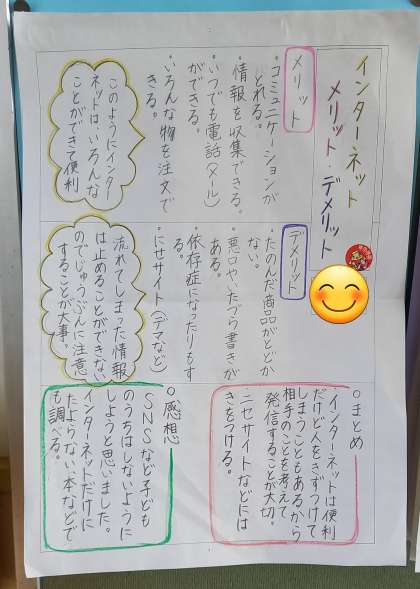 インターネット
メリット・デメリット
メリット
・コミュニケーションが
とれる。
・情報を収集できる。
・いつでも電話(メール)
ができる。
・いろんな物を注文で
きる。
このようにインター
ネットはいろんな
ことができて便利
デメリット
・たのんだ商品がとどか
ない。
・悪口やいたづら書きが
ある。
・依存症になったりもす
る。
・にせサイト(デマなど)
流れてしまった情報
は止めることができない
のでじゅうぶんに注意
することが大事。
○まとめ
インターネットは便利
だけど人をきずつけて
しまうこともあるから
相手のことを考えて
発信することが大切。
ニセサイトなどには
きをつける。
○感想
SNSなど子ども
のうちはしないように
しようと思いました。
インターネットだけに
たよらない本などで
も調べる。